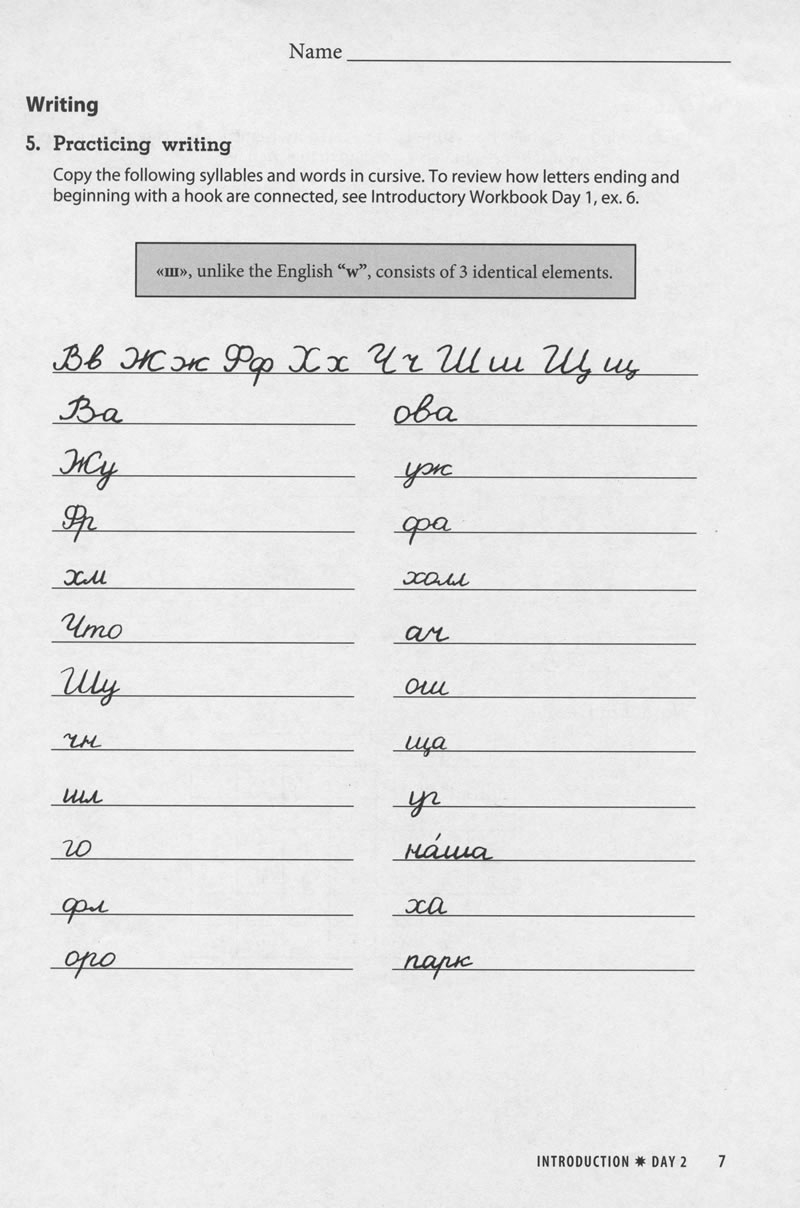 Name
Writing
5. Practicing writing
Copy the following syllables and words in cursive. To review how letters ending and
beginning with a hook are connected, see Introductory Workbook Day 1, ex. 6.
«ш», unlike the English “w”, consists of 3 identical elements.
Вв Жж Фф Хх Чч Шш Щщ
Ва ова
Жу уж
Фр фа
хм холл
Что ач
Шу ош
чн ща
шл уг
го на́ша
фл ха
оро парк
INTRODUCTION ✷ DAY 2 7